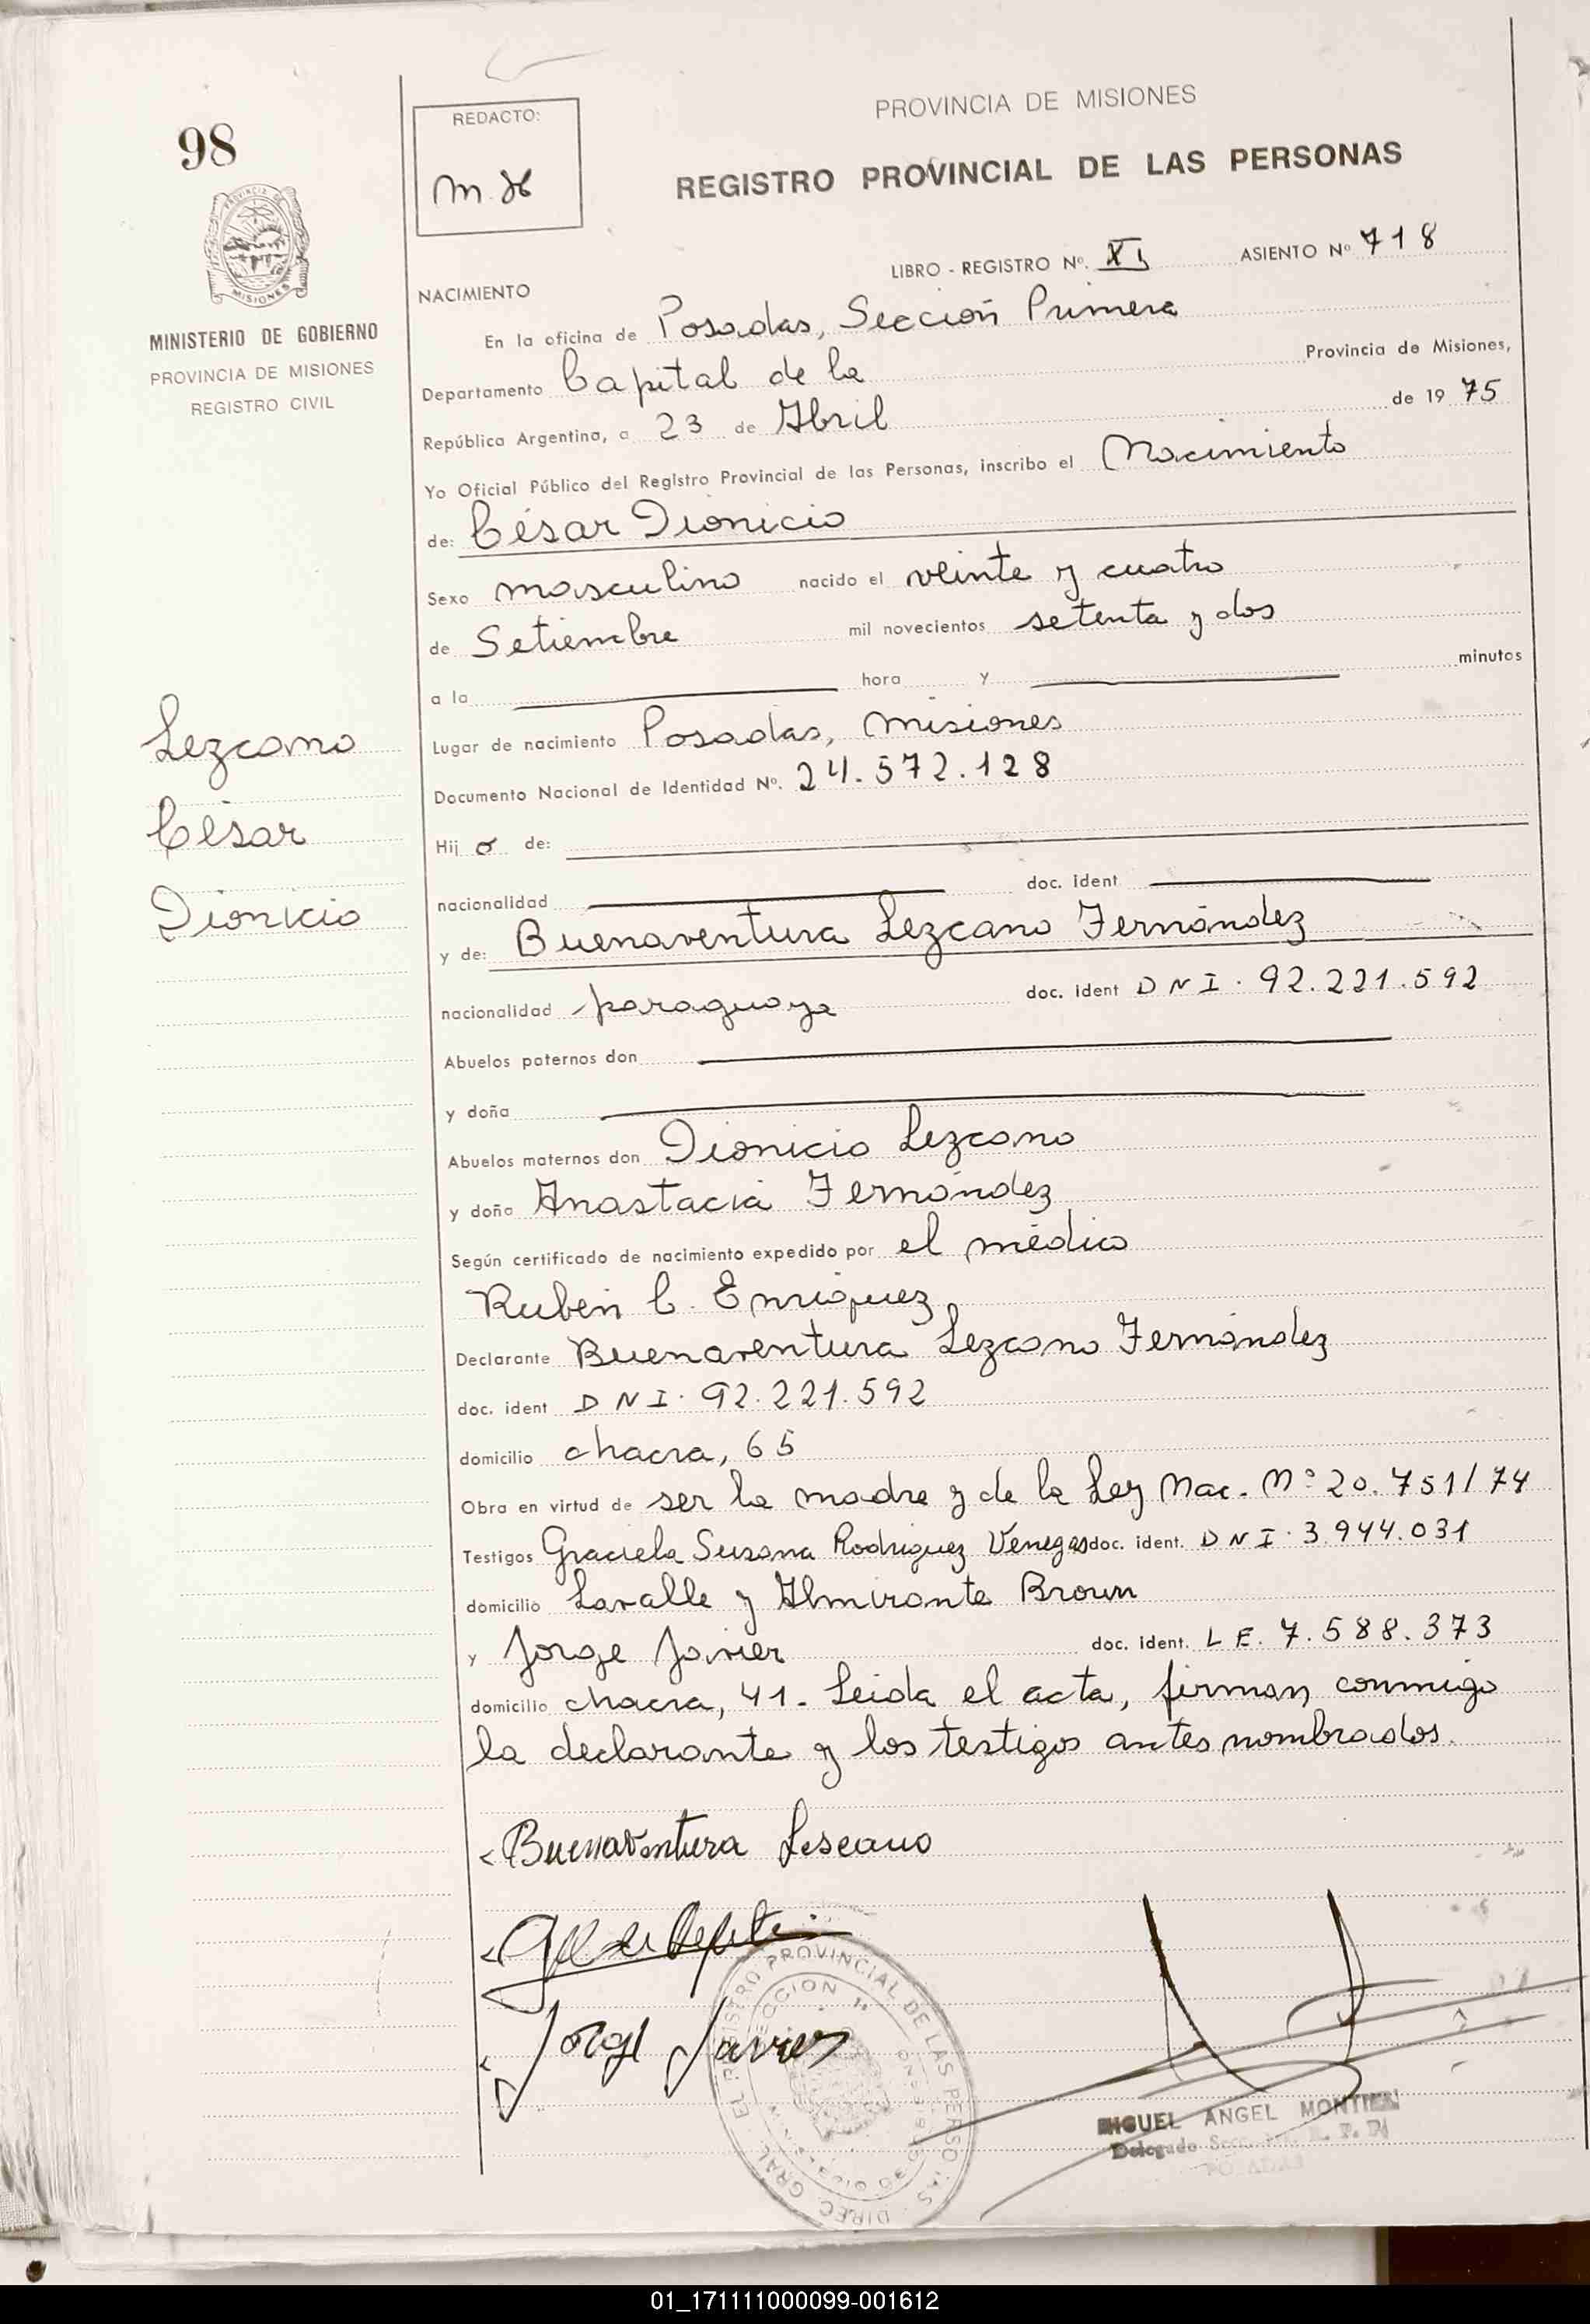 98
REDACTO:
PROVINCIA DE MISIONES
REGISTRO PROVINCIAL DE LAS PERSONAS
LIBRO - REGISTRO Nº. XI ASIENTO Nº 718
MINISTERIO DE GOBIERNO
PROVINCIA DE MISIONES
REGISTRO CIVIL
NACIMIENTO
En la oficina de Posadas, Sección Primera
Departamento Capital de la Provincia de Misiones,
República Argentina, a 23 de Abril de 1975
Yo Oficial Público del Registro Provincial de las Personas, inscribo el Nacimiento
de: César Dionicio
Sexo masculino nacido el veinte y cuatro
de Setiembre mil novecientos setenta y dos
a la hora y minutos
Lezcano
César
Dionicio
Lugar de nacimiento Posadas, Misiones
Documento Nacional de Identidad Nº. 24.572.128
Hij o de:
nacionalidad doc. ident
y de: Buenaventura Lezcano Fernández
nacionalidad paraguaya doc. ident DNI. 92.221.592
Abuelos paternos don
y doña
Abuelos maternos don Dionicio Lezcano
y doña Anastacia Fernández
Según certificado de nacimiento expedido por el médico
Rubén C. Enriquez
Declarante Buenaventura Lezcano Fernández
doc. ident DNI. 92.221.592
domicilio chacra, 65
Obra en virtud de ser la madre y de la Ley Nac. Nº 20.751/74
Testigos Graciela Susana Rodriguez Venegas doc. ident. DNI. 3.944.031
domicilio Lavalle y Almirante Brown
y Jorge Javier doc. ident. L E. 7.588.373
domicilio chacra, 41. Leida el acta, firman conmigo
la declarante y los testigos antes nombrados.
Buenaventura Lescano
Jorge Javier
MIGUEL ANGEL MONTIEL
Delegado
POSADAS
DIREC. GRAL. EL REGISTRO PROVINCIAL DE LAS PERSONAS
SECCION 1ª
01_171111000099-001612